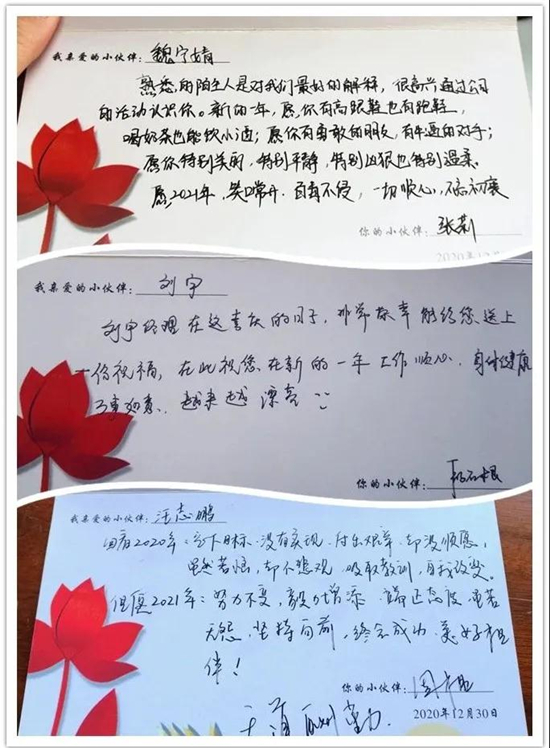 我亲爱的小伙伴：魏宁婧
熟悉的陌生人是对我们最好的解释，很高兴通过公司
的活动认识你。新的一年，愿你有高跟鞋也有跑鞋，
喝奶茶也能饮小酒；愿你有勇敢的朋友，有牛逼的对手；
愿你特别美丽，特别平静，特别凶狠也特别温柔。
愿2021年，笑口常开，百毒不侵，一切顺心，不忘初衷
你的小伙伴：张莉
我亲爱的小伙伴：刘宇
刘宇经理在这喜庆的日子，非常荣幸能给您送上
一份祝福，在此祝您在新的一年工作顺心、身体健康
万事如意、越来越漂亮
你的小伙伴：
我亲爱的小伙伴：汪志鹏
回首2020年：立下目标·没有实现·付出艰辛·却没顺愿，
虽然苦恼，却不悲观·吸取教训，自我改变。
但愿2021年：努力不变，毅力增添，
无怨，坚持向前，终会成功·美好相
伴！
你的小伙伴：
2020年12月30日